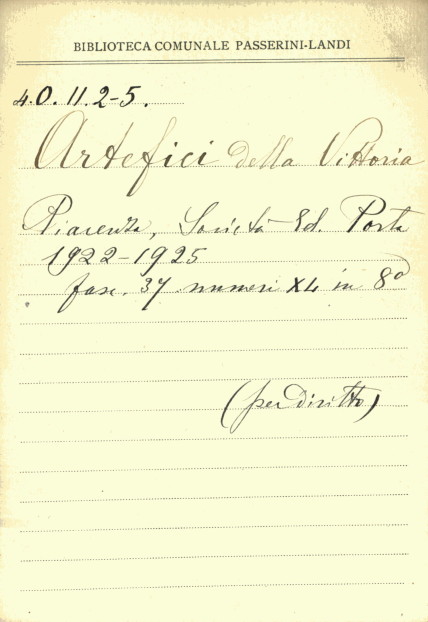 BIBLIOTECA COMUNALE PASSERINI-LANDI
4.O.11.2-5.
Artefici della Vittoria
Piacenza, Società Ed. Porta
1922-1925
fasc. 37 numeri XL in 8º
(per diritto)